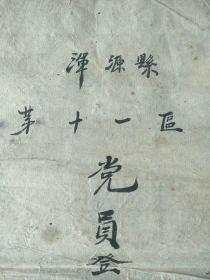 渾源縣
第十一區
党員登